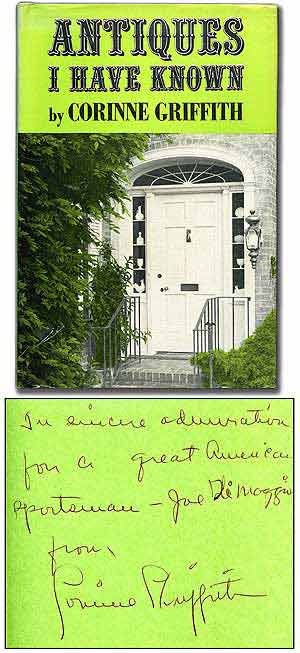 ANTIQUES
I HAVE KNOWN
by CORINNE GRIFFITH
In sincere admiration
for a great American
sportsman – Joe Di Maggio
from,
Corinne Griffith